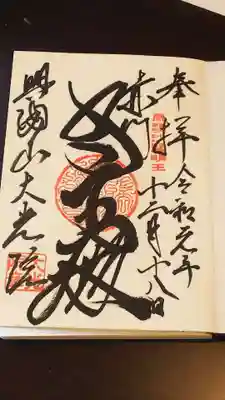 奉拝 令和元年
十二月十八日
赤門
明王殿
興國山大光院